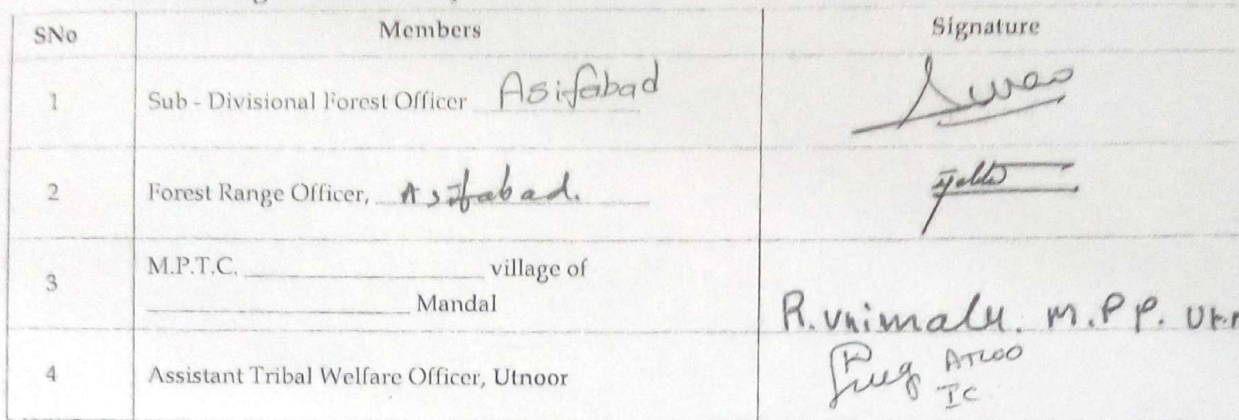 SNo Members Signature
1 Sub - Divisional Forest Officer Asifabad
2 Forest Range Officer, Asifabad.
3 M.P.T.C. ____________ village of
____________ Mandal
R. M.P.P.
4 Assistant Tribal Welfare Officer, Utnoor
ATWO
IC